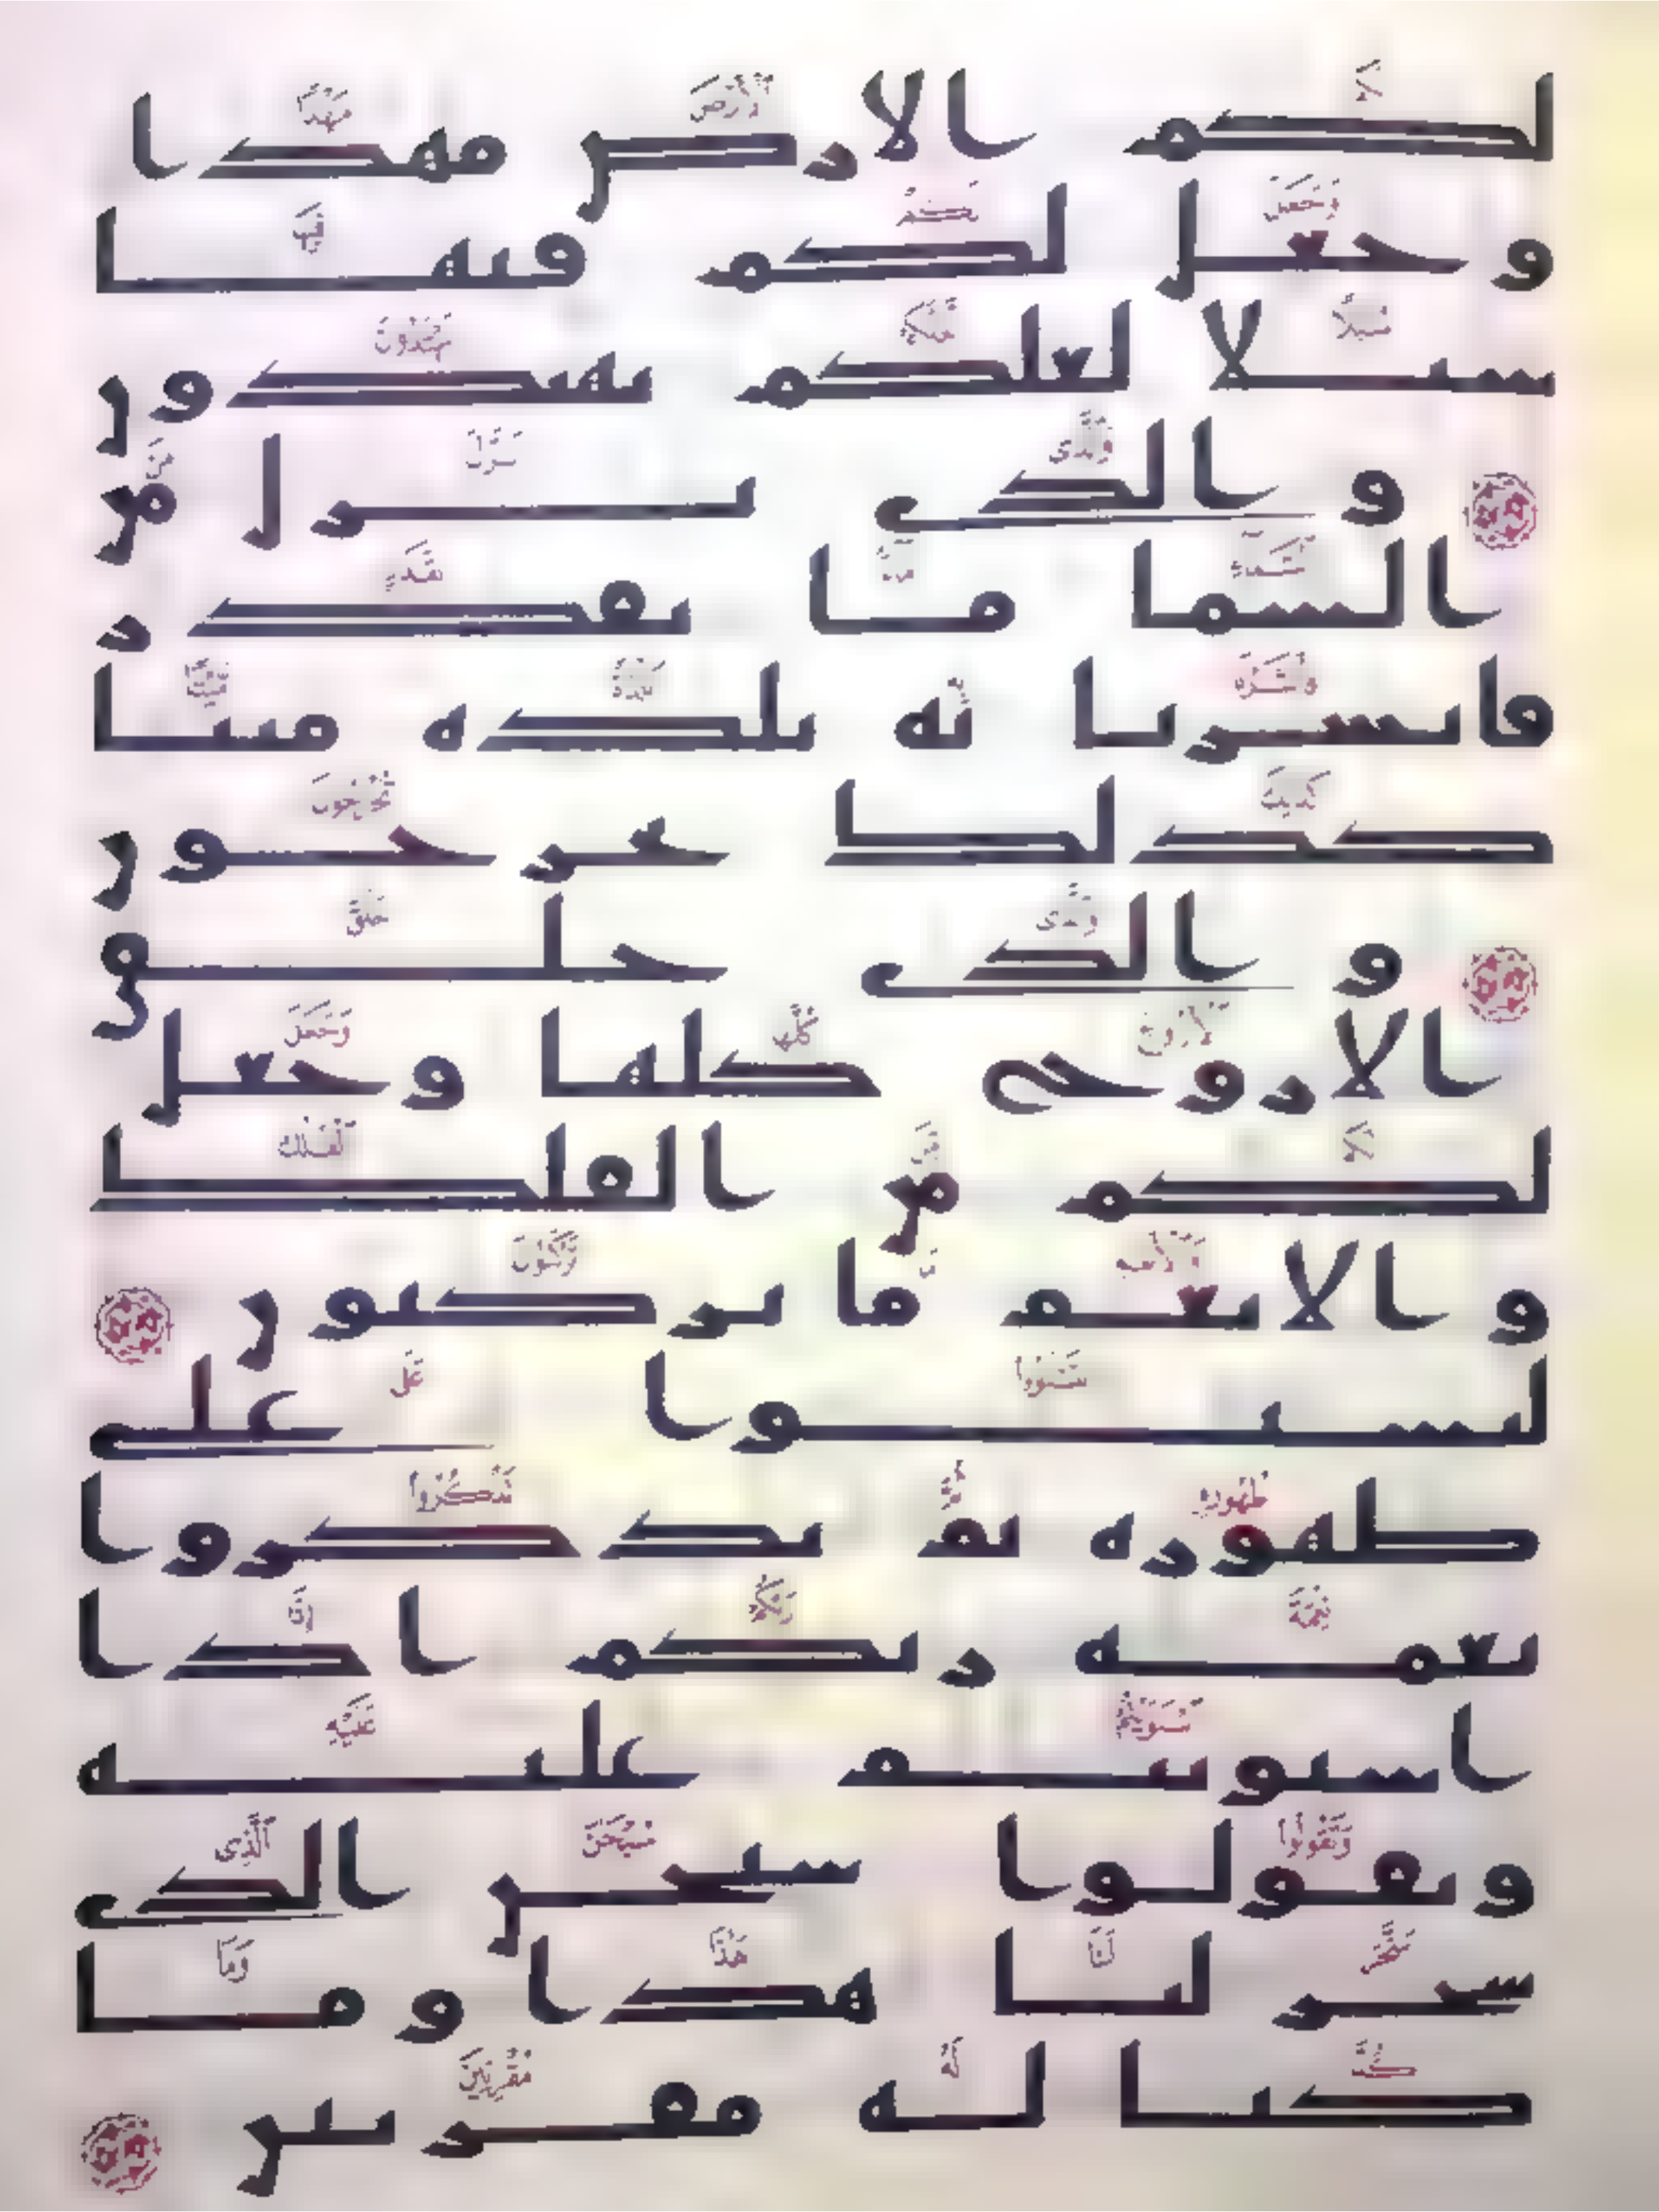 لكم الارض مهدا
وجعل لكم فيها
سبلا لعلكم تهتدون
والذى نزل من
السما ما بقدر
فانشرنا به بلده ميتا
كذلك تخرجون
والذى خلق
الازوج كلها وجعل
لكم من الفلك
والانعم ما تركبون
لتستوا على
ظهوره ثم تذكروا
نعمه ربكم اذا
استويتم عليه
وتقولوا سبحن الذى
سخر لنا هذا وما
كنا له مقرنين